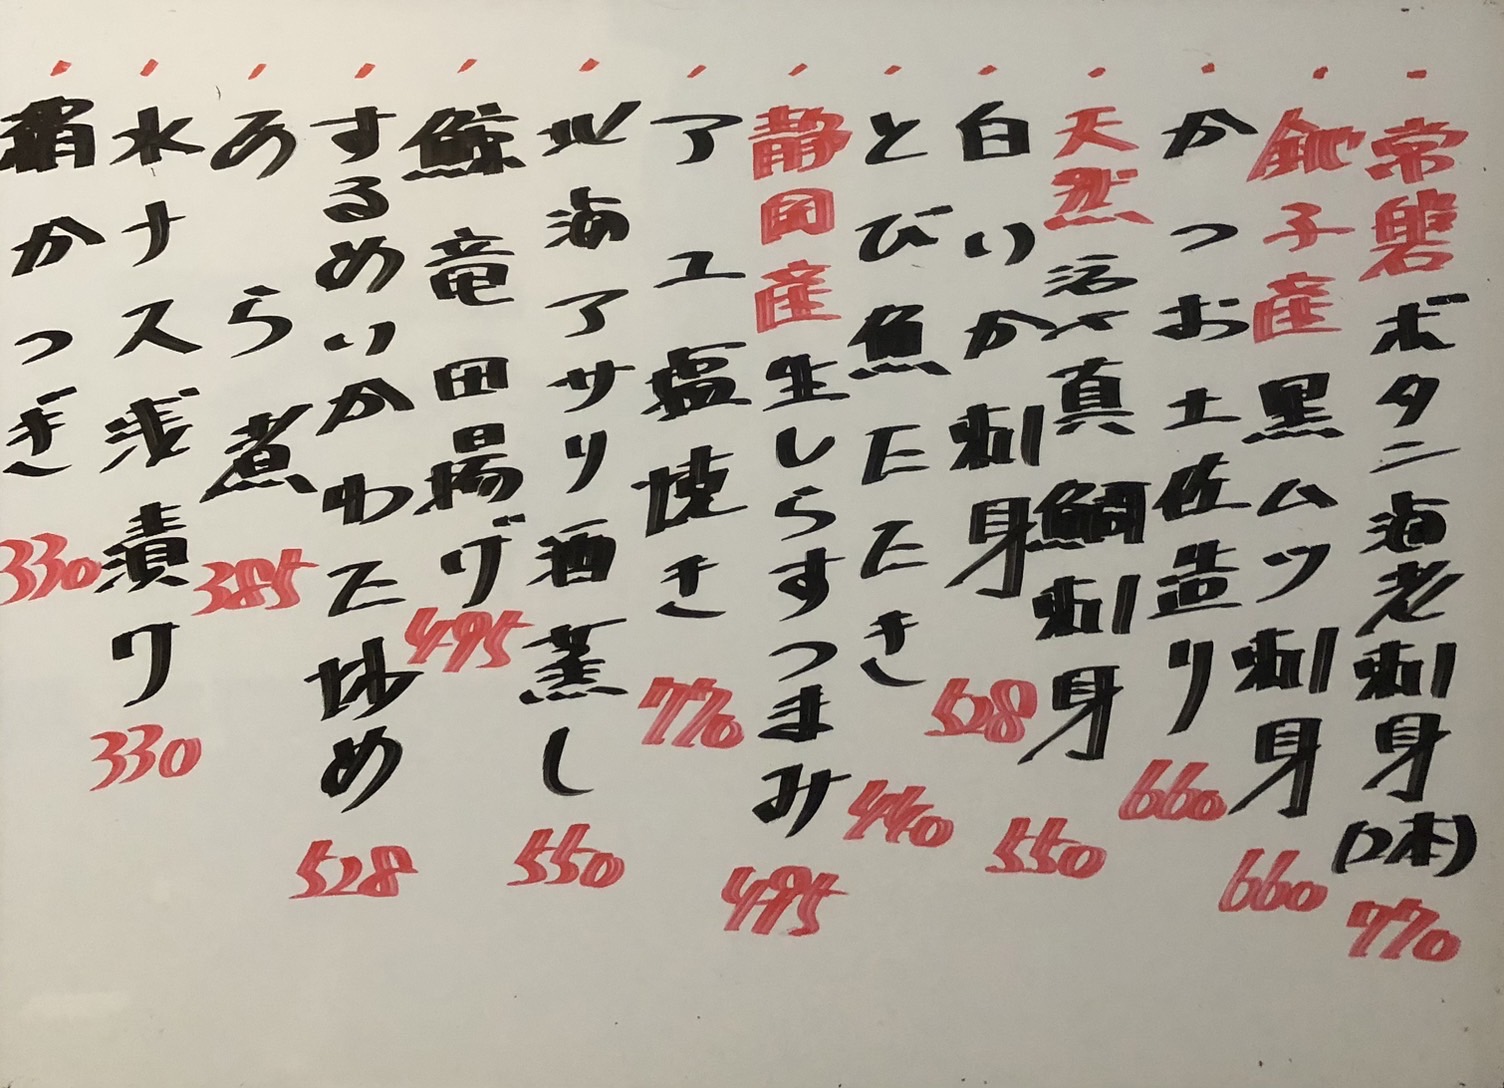 常磐ボタン海老刺身(2本) 770
銚子産黒ムツ刺身 660
かつお土佐造り 660
天然活〆真鯛刺身 550
白いか刺身 528
とび魚たたき 440
静岡産生しらすつまみ 495
アユ塩焼き 770
地海アサリ酒蒸し 550
鯨竜田揚げ 495
するめいかわた炒め 528
あら煮 385
水ナス浅漬り 330
絹かつぎ 330